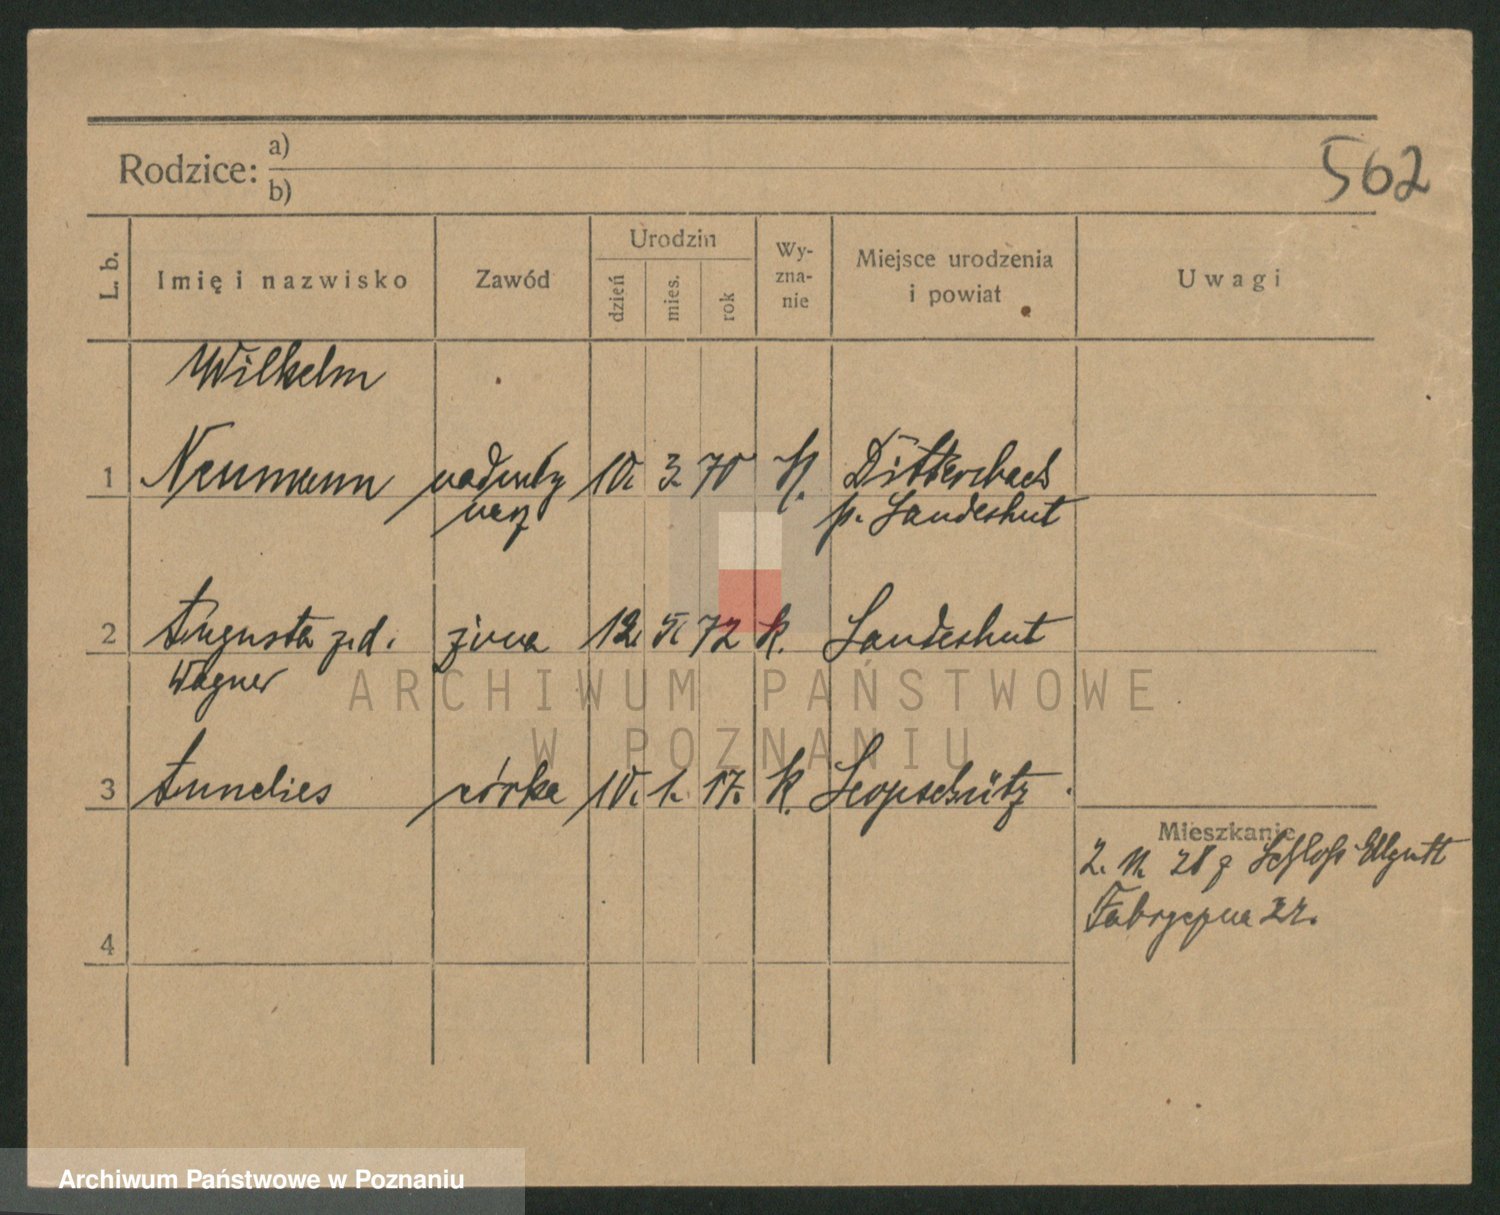 562
Rodzice: a)
b)
L. b.
Imię i nazwisko
Zawód
Urodzin
dzień
mies.
rok
Wy-
zna-
nie
Miejsce urodzenia
i powiat
Uwagi
Wilhelm
1 Neumann 10. 3. 70 Dittersbach
p. Landeshut
2 Augusta z. d. żona 12. 5. 72 k. Landeshut
Wagner
3 Annelies córka 10. 1. 17. k. Leopschütz
Mieszkanie
2. 11. 28 z Schloß Ellgutt
Fabryczna
4
ARCHIWUM PAŃSTWOWE
W POZNANIU
Archiwum Państwowe w Poznaniu